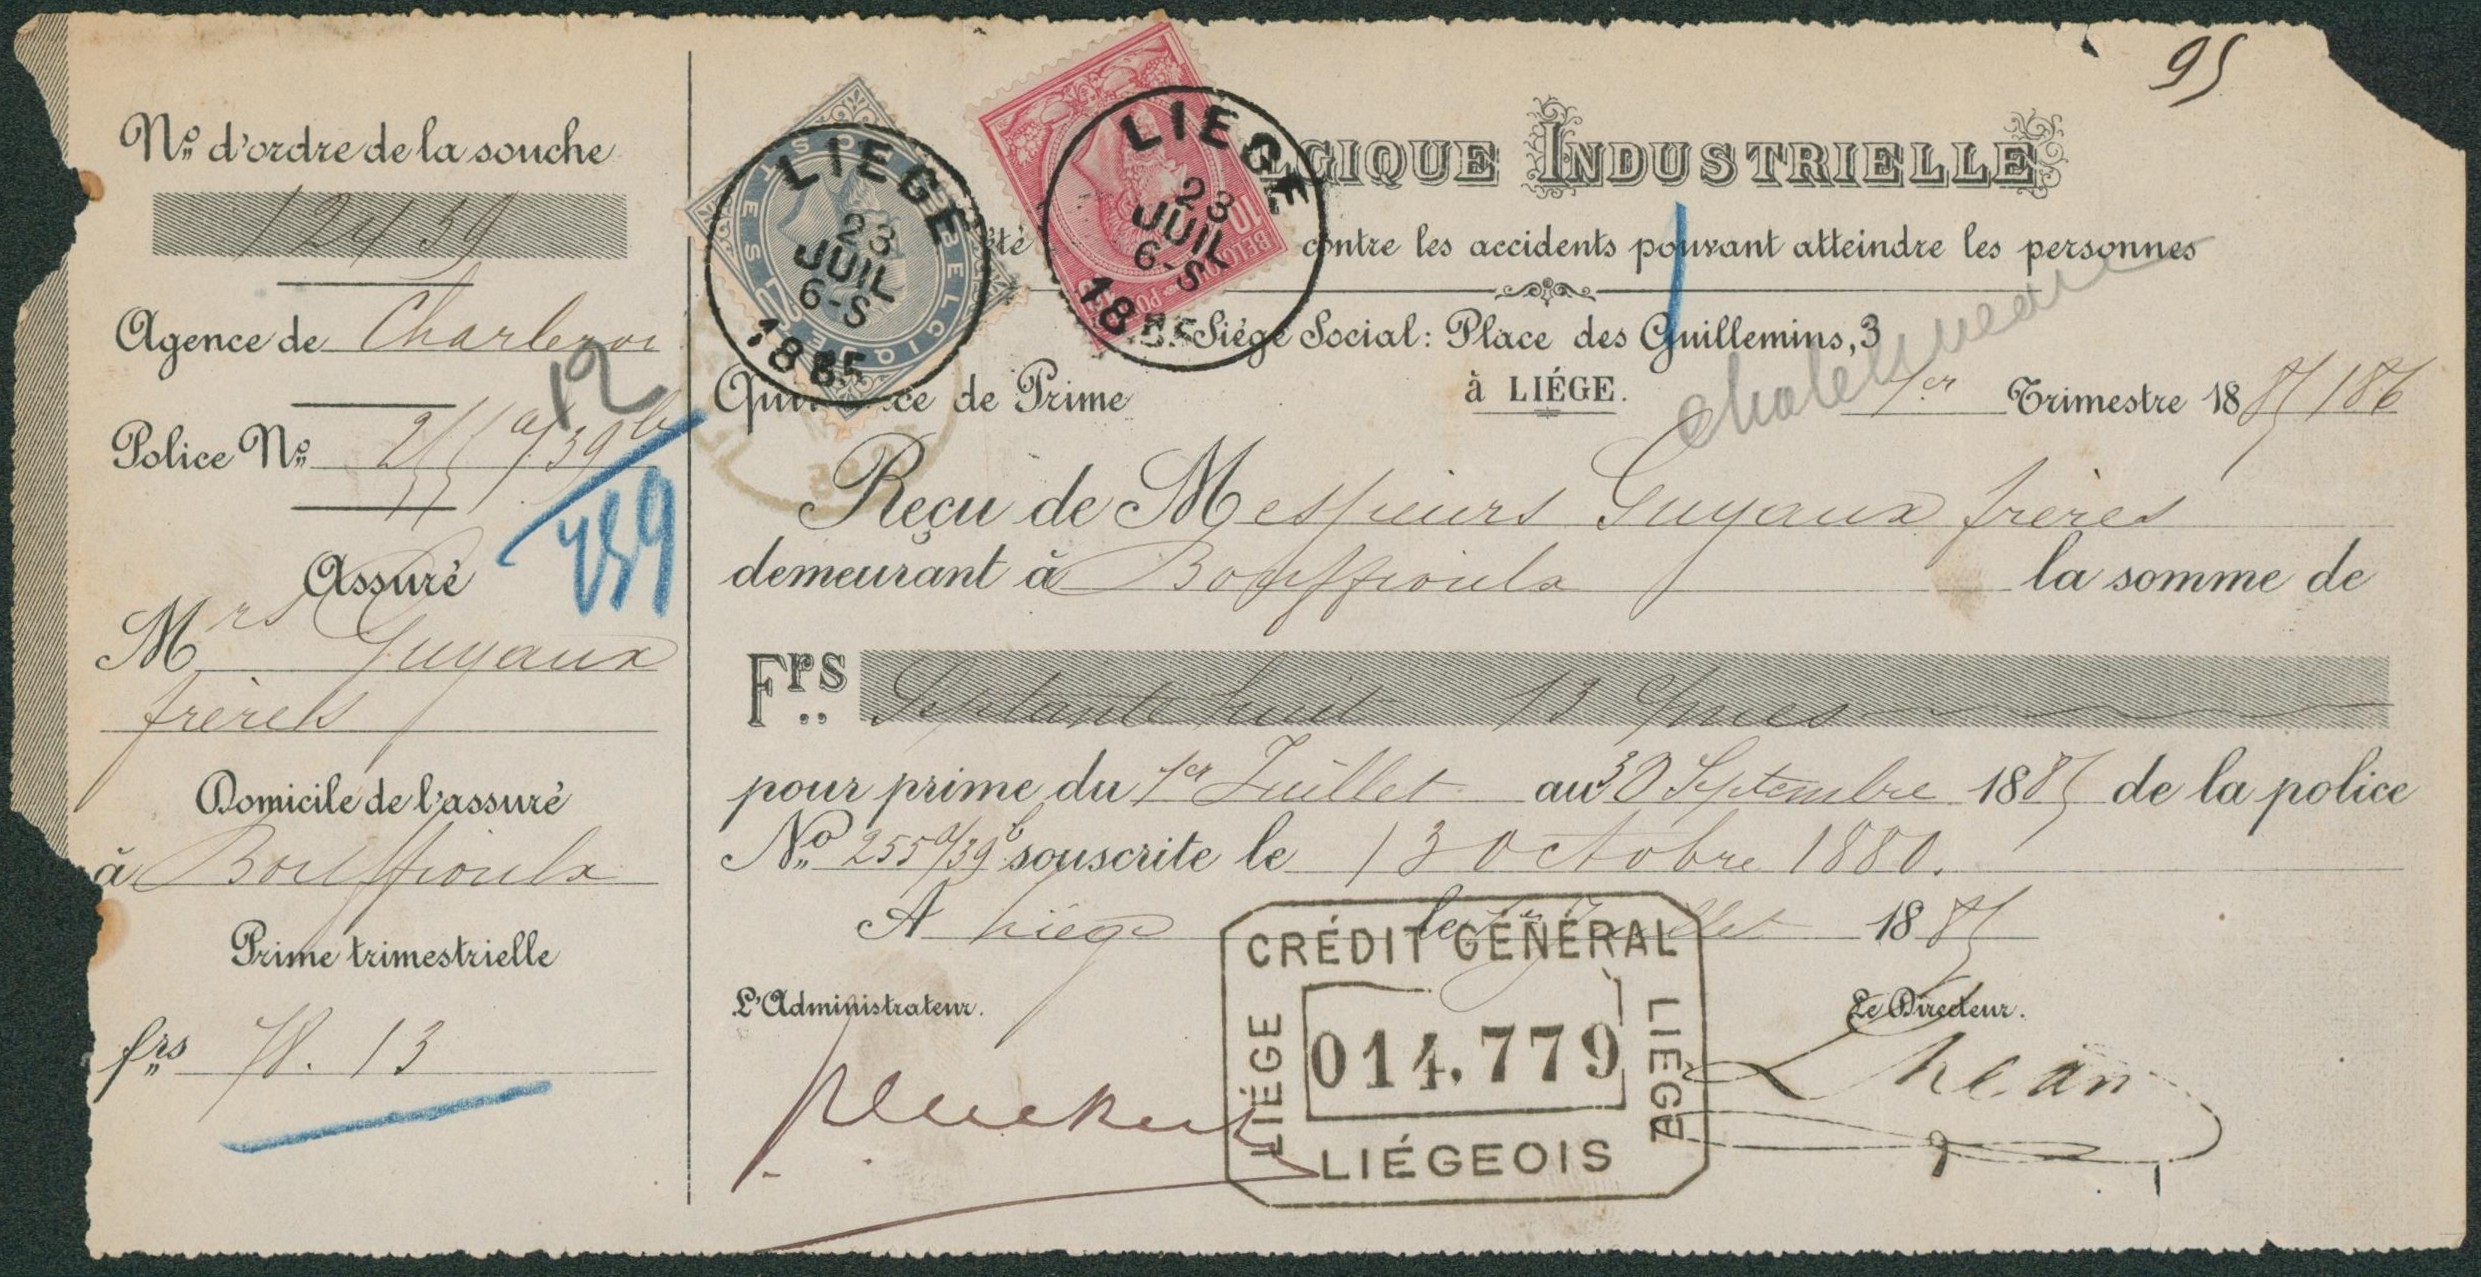 Nº d'ordre de la souche
12439
Agence de Charleroi
12
Police Nº 255 a/39 b
259
Assuré
Mrs Guyaux
frères
Domicile de l'assuré
à Bouffioulx
Prime trimestrielle
frs 78.13
95
LIEGE
23
JUIL
6-S
1885
LIEGE
23
JUIL
6-S
1885
LGIQUE INDUSTRIELLE
té contre les accidents pouvant atteindre les personnes
Siége Social: Place des Guillemins, 3
à LIÉGE.
Qui ce de Prime
1er Trimestre 1885/186
Reçu de Messieurs Guyaux frères
demeurant à Bouffioulx la somme de
Frs Septante huit 13 cmes
pour prime du 1er Juillet au 30 Septembre 1885 de la police
Nº 255 a/39 b souscrite le 13 Octobre 1880.
A Liége le 1er Juillet 1885
L'Administrateur.
Le Directeur.
CRÉDIT GÉNÉRAL
LIÉGE
014.779
LIÉGE
LIÉGEOIS